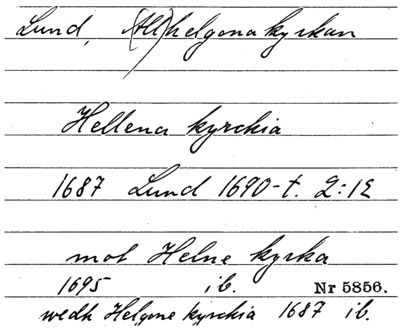 Lund, (All)helgona kyrkan
Hellena kyrckia
1687 Lund 1690-t. 2:12
mot Helne kyrka
1695 ib. Nr 5856.
wedh Helgone kyrckia 1687 ib.